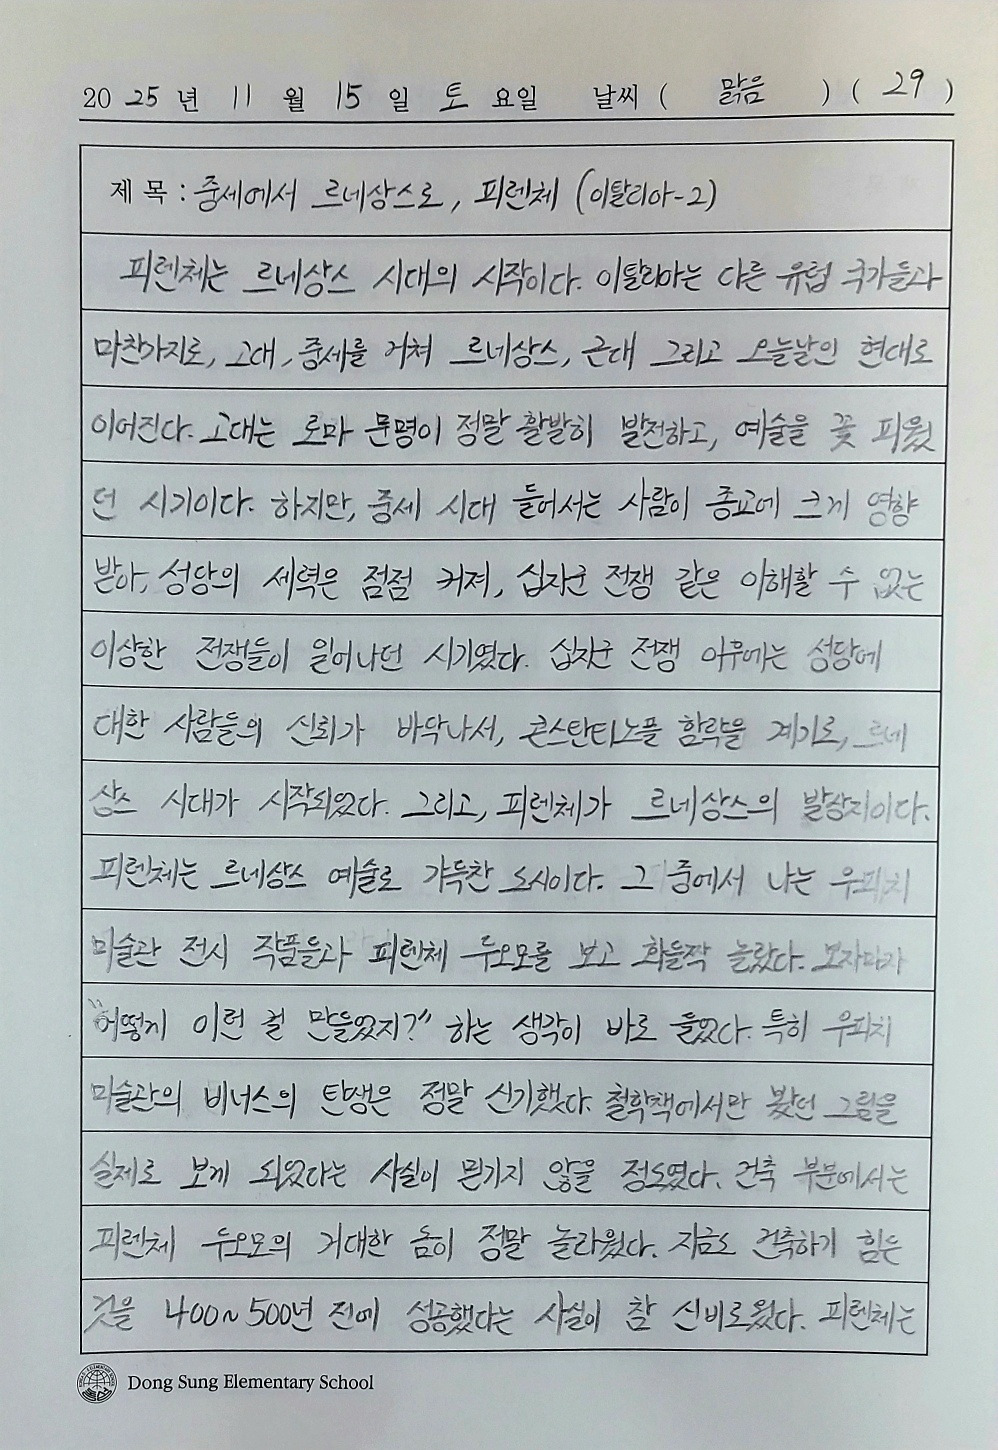 2025년 11월 15일 토요일 날씨 ( 맑음 ) ( 29 )
제 목 : 중세에서 르네상스로, 피렌체 (이탈리아-2)
피렌체는 르네상스 시대의 시작이다. 이탈리아는 다른 유럽 국가들과
마찬가지로, 고대, 중세를 거쳐 르네상스, 근대 그리고 오늘날인 현대로
이어진다. 고대는 로마 문명이 정말 활발히 발전하고, 예술을 꽃 피웠
던 시기이다. 하지만, 중세 시대 들어서는 사람이 종교에 크게 영향
받아, 성당의 세력은 점점 커져, 십자군 전쟁 같은 이해할 수 없는
이상한 전쟁들이 일어나던 시기였다. 십자군 전쟁 이후에는 성당에
대한 사람들의 신뢰가 바닥나서, 콘스탄티노플 함락을 계기로, 르네
상스 시대가 시작되었다. 그리고, 피렌체가 르네상스의 발상지이다.
피렌체는 르네상스 예술로 가득찬 도시이다. 그 중에서 나는 우피치
미술관 전시 작품들과 피렌체 두오모를 보고 화들짝 놀랐다. 보자마자
"어떻게 이런 걸 만들었지?" 하는 생각이 바로 들었다. 특히 우피치
미술관의 비너스의 탄생은 정말 신기했다. 철학책에서만 봤던 그림을
실제로 보게 되었다는 사실이 믿기지 않을 정도였다. 건축 부분에서는
피렌체 두오모의 거대한 돔이 정말 놀라웠다. 지금도 건축하기 힘든
것을 400~500년 전에 성공했다는 사실이 참 신비로웠다. 피렌체는
Dong Sung Elementary School